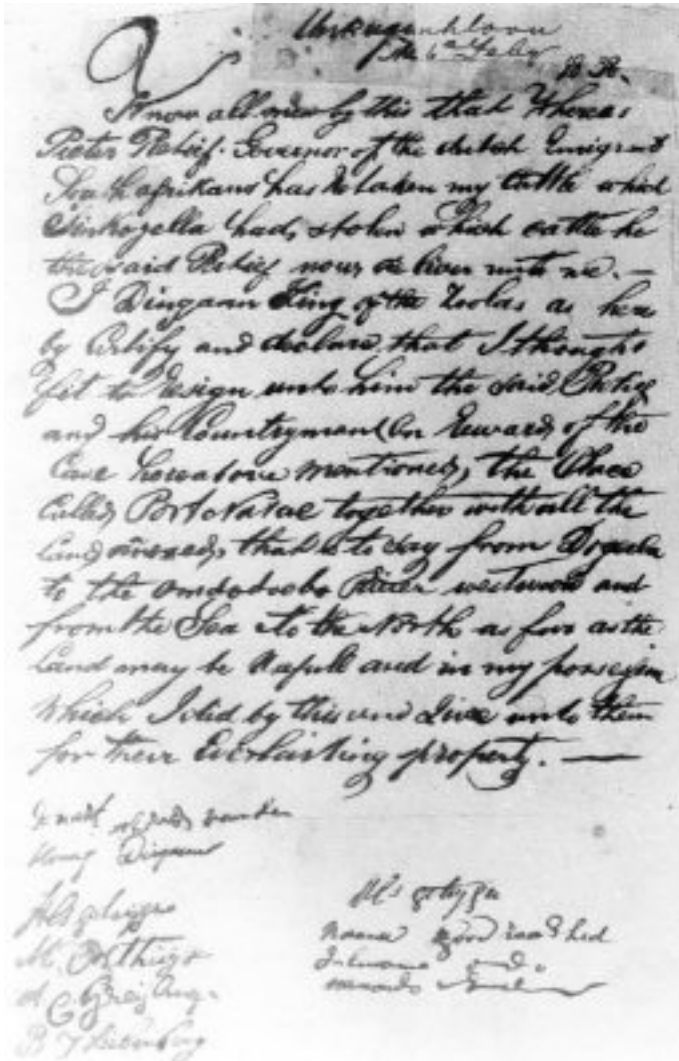 Umkugunkloou
the 6th Feby
1838.
Know all men by this that Whereas
Pieter Retief. Governor of the dutch Emigrant
South afrikans has Retaken my Cattle which
Sinkonyella had, stolen which cattle he
the said Retief now deliver unto me. —
I Dingaan King of the Zoolas as here
by Certify and declare that I thought
fit to Resign unto him the said, Retief
and his Countryman (on Reward, of the
Case hereabove mentioned, the Place
Called, Port Natal together with all the
Land annexed, that is to say from Dogeela
to the Omsoboebo River westward and
from the Sea to the North as far as the
Land may be Usefull and in my possession
Which I did by this and Give unto them
for their Everlasting property. —
de merk
Koning Dingaan
M. Oosthuyse
A. C. Greyling
B. J. Liebenberg